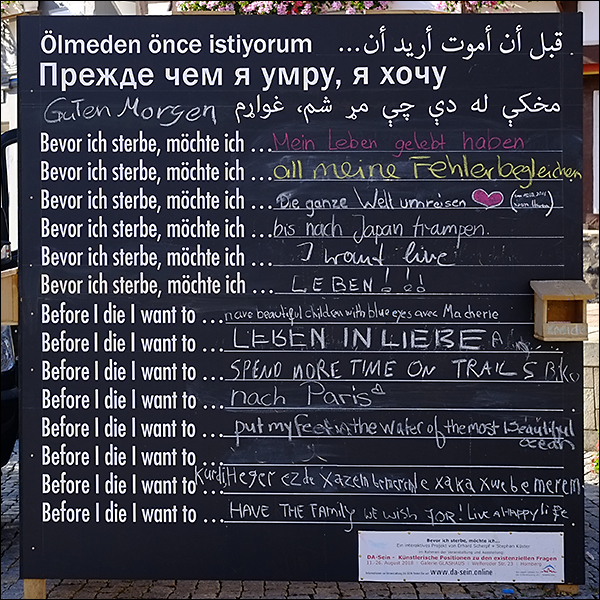 Ölmeden önce istiyorum
قبل أن أموت أريد أن...
Прежде чем я умру, я хочу
Guten Morgen
مخکې له دې چې مړ شم، غواړم
Bevor ich sterbe, möchte ich ... Mein Leben gelebt haben
Bevor ich sterbe, möchte ich ... all meine Fehler begleichen
Bevor ich sterbe, möchte ich ... Die ganze Welt umreisen
Bevor ich sterbe, möchte ich ... bis nach Japan trampen.
Bevor ich sterbe, möchte ich ... I want live
Bevor ich sterbe, möchte ich ... LEBEN!!!
Before I die I want to ... have beautiful children with blue eyes avec Ma cherie
Before I die I want to ... LEBEN IN LIEBE
Before I die I want to ... SPEND MORE TIME ON TRAILS
Before I die I want to ... nach Paris
Before I die I want to ... put my feet in the water of the most beautiful
ocean
Before I die I want to ...
Before I die I want to ... Kurdi, Heger ez de xaxa xwe bemerem
Before I die I want to ... HAVE THE FAMILY WE WISH FOR! Live A HAPPY life
Bevor ich sterbe, möchte ich...
Ein interaktives Projekt von Erhard Scherpf + Stephan Küster
im Rahmen der Veranstaltung und Ausstellung:
DA-Sein - Künstlerische Positionen zu den existenziellen Fragen
11.-26. August 2018 - Galerie GLASHAUS - Wolfsroder Str. 23 - Homberg
www.da-sein.online